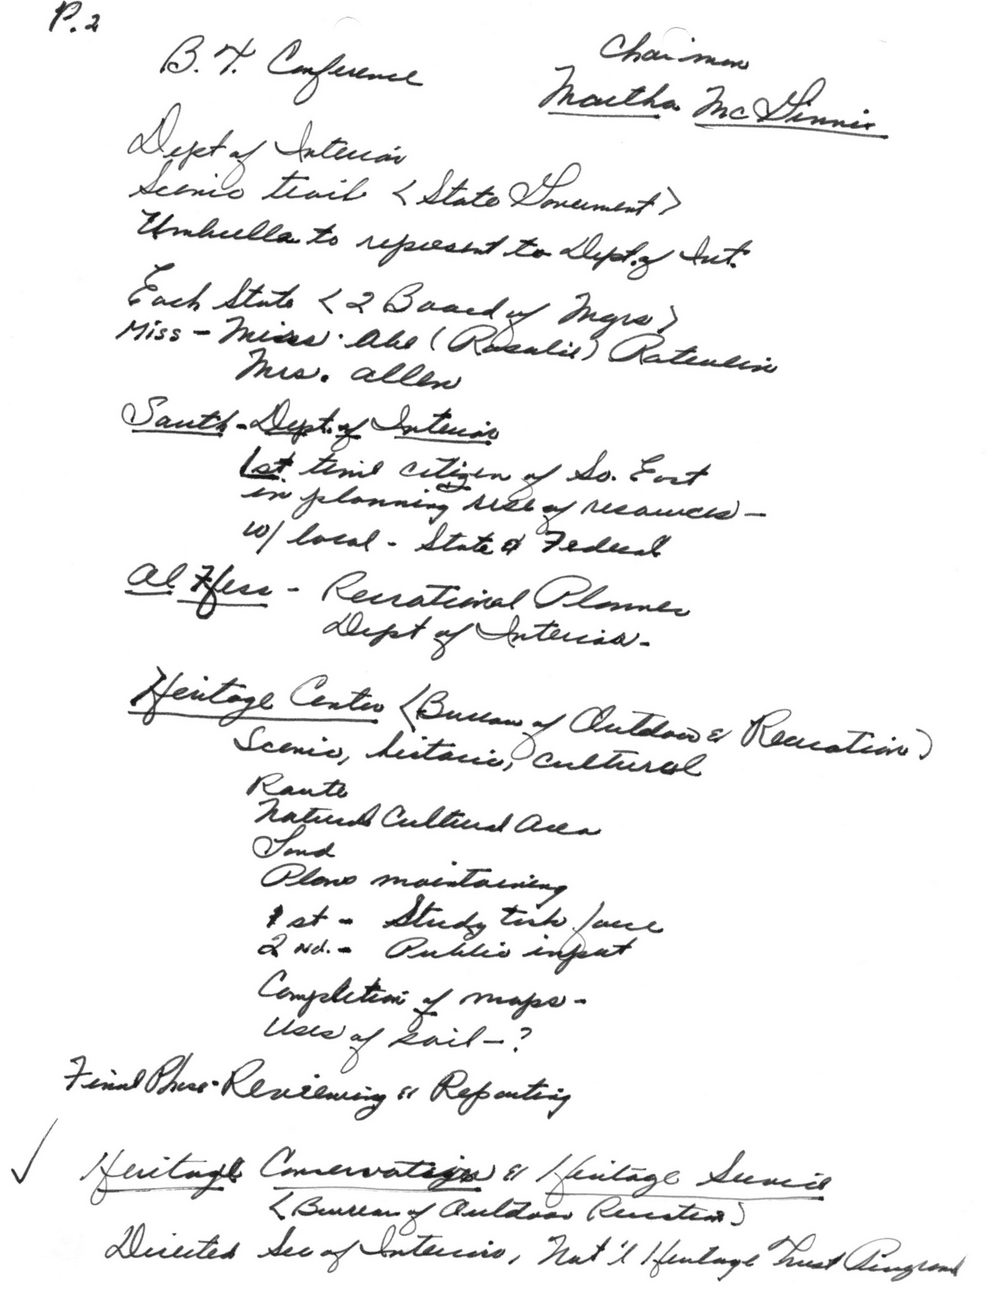 P. 2
B. T. Conference
Chairman
Martha McGinnis
Dept of Interior
Scenic trail <State Government>
Umbrella to represent to Dept. of Int.
Each State <2 Board of Mgrs>
Miss - Miss. Abe (Rosalie)
Mrs. Allen
South - Dept. of Interior
1st time citizen of So. East
in planning use of resources -
w/ local - State & Federal
Al Hess - Recrational Planner
Dept of Interior -
Heritage Center <Bureau of Outdoor & Recreation>
Scenic, historic, cultural
Route
Natural Cultural Area
Land
Plans maintaining
1st - Study task force
2nd. - Public input
Completion of maps -
Uses of soil - ?
Final Phase - Reviewing & Reporting
✓ Heritage Conservation & Heritage Service
<Bureau of Outdoor Recreation>
Directed Sec of Interior, Nat'l Heritage Trust Program